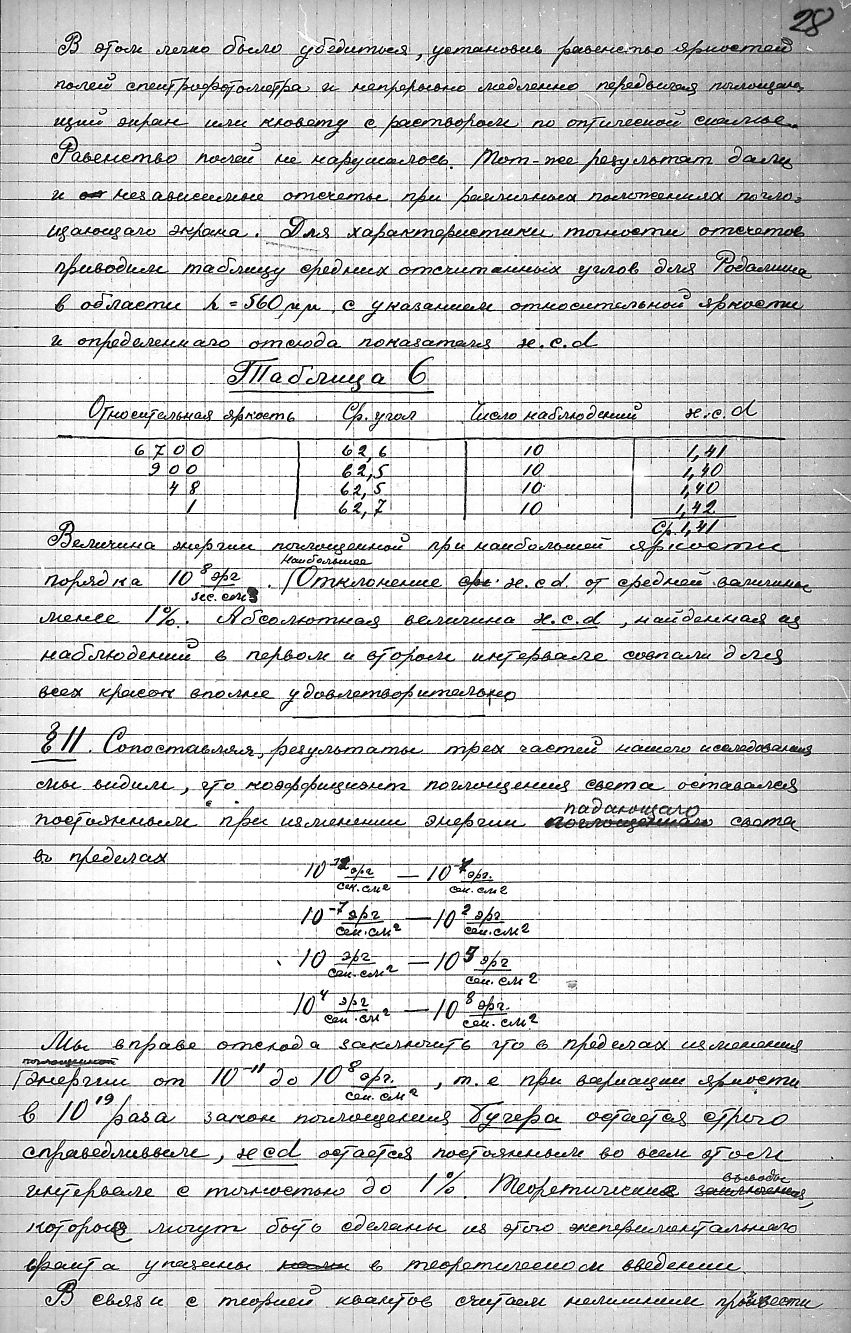 28
В этом легко было убедиться, установив равенство яркостей
полей спектрофотометра и непрерывно медленно передвигая поглощаю-
щий экран или кювету с раствором по оптической скамье.
Равенство полей не нарушалось. Тот-же результат дали
и независимые отсчеты при различных положениях погло-
щающаго экрана. Для характеристики точности отсчетов
приводим таблицу средних отсчитанных углов для Родамина
в области λ = 560 μμ, с указанием относительной яркости
и определеннаго отсюда показателя ϰ.c.d
Таблица 6
Относительная яркость Ср. угол Число наблюдений ϰ.c.d
6700 62,6 10 1,41
900 62,5 10 1,40
48 62,5 10 1,40
1 62,7 10 1,42
Ср. 1,41
Величина энергии поглощенной при наибольшей яркости
порядка 10⁸ эрг/сек.см³. Наибольшее отклонение ϰ.c.d. от средней величины
менее 1%. Абсолютная величина ϰ.c.d, найденная из
наблюдений в первом и втором интервале совпали для
всех красок вполне удовлетворительно
§ 11. Сопоставляя, результаты трех частей нашего исследования
мы видим, что коэффициент поглощения света оставался
постоянным при изменении энергии падающаго света
в пределах
10⁻¹² эрг/сек.см² — 10⁻⁷ эрг./сек.см²
10⁻⁷ эрг/сек.см² — 10² эрг/сек.см²
10 эрг/сек.см² — 10⁵ эрг/сек.см²
10⁴ эрг/сек.см² — 10⁸ эрг./сек.см²
Мы вправе отсюда заключить что в пределах изменения
энергии от 10⁻¹¹ до 10⁸ эрг./сек.см², т.е при вариации яркости
в 10¹⁹ раза закон поглощения Бугера остается строго
справедливым, ϰcd остается постоянным во всем этом
интервале с точностью до 1%. Теоретические выводы,
которые могут быть сделаны из этого экспериментальнаго
факта указаны в теоретическом введении.
В связи с теорией квантов считаем нелишним произвести